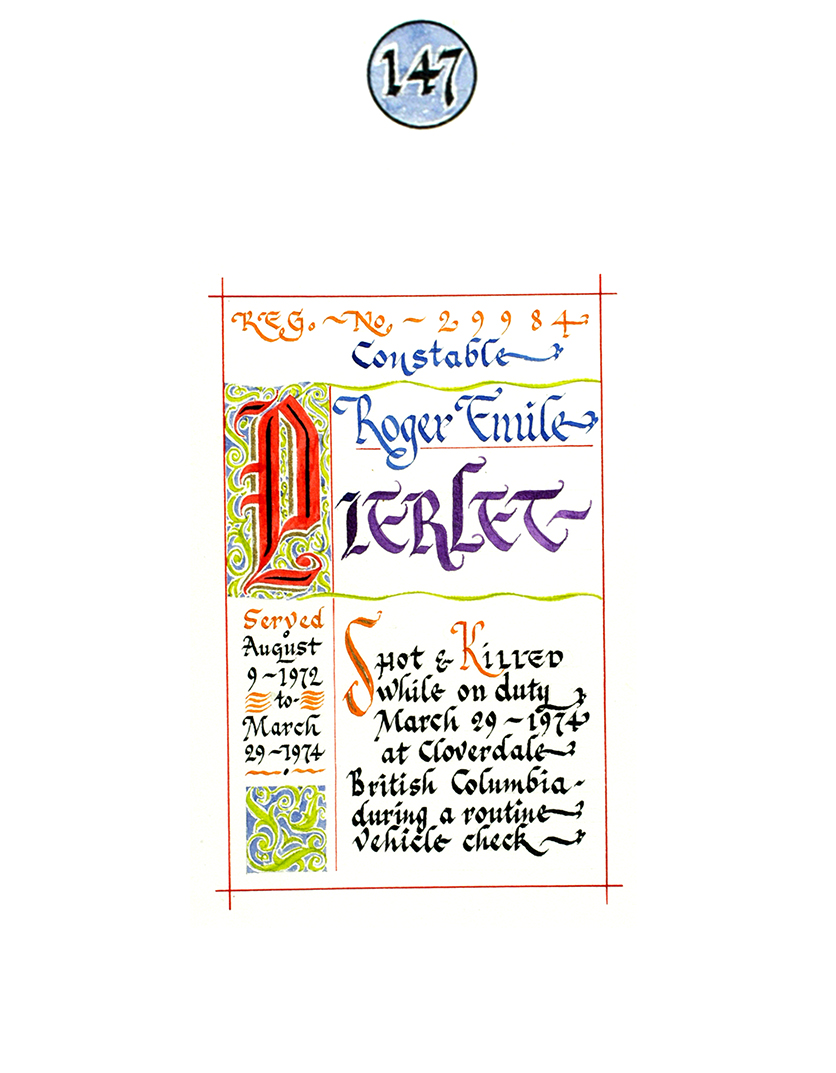 147
REG. ~ No. ~ 29984
Constable
Roger Emile
PIERLET
Served
August
9~1972
to
March
29~1974
Shot & Killed
while on duty
March 29~1974
at Cloverdale
British Columbia-
during a routine
vehicle check